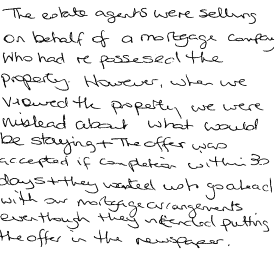 The estate agents were selling
on behalf of a mortgage company
who had re possesed the
property. However, when we
viewed the property we were
mislead about what would
be staying + The offer was
accepted if completion within 30
days + they wanted us to go ahead
with our mortgage arrangements
even though they intended putting
the offer in the newspaper.